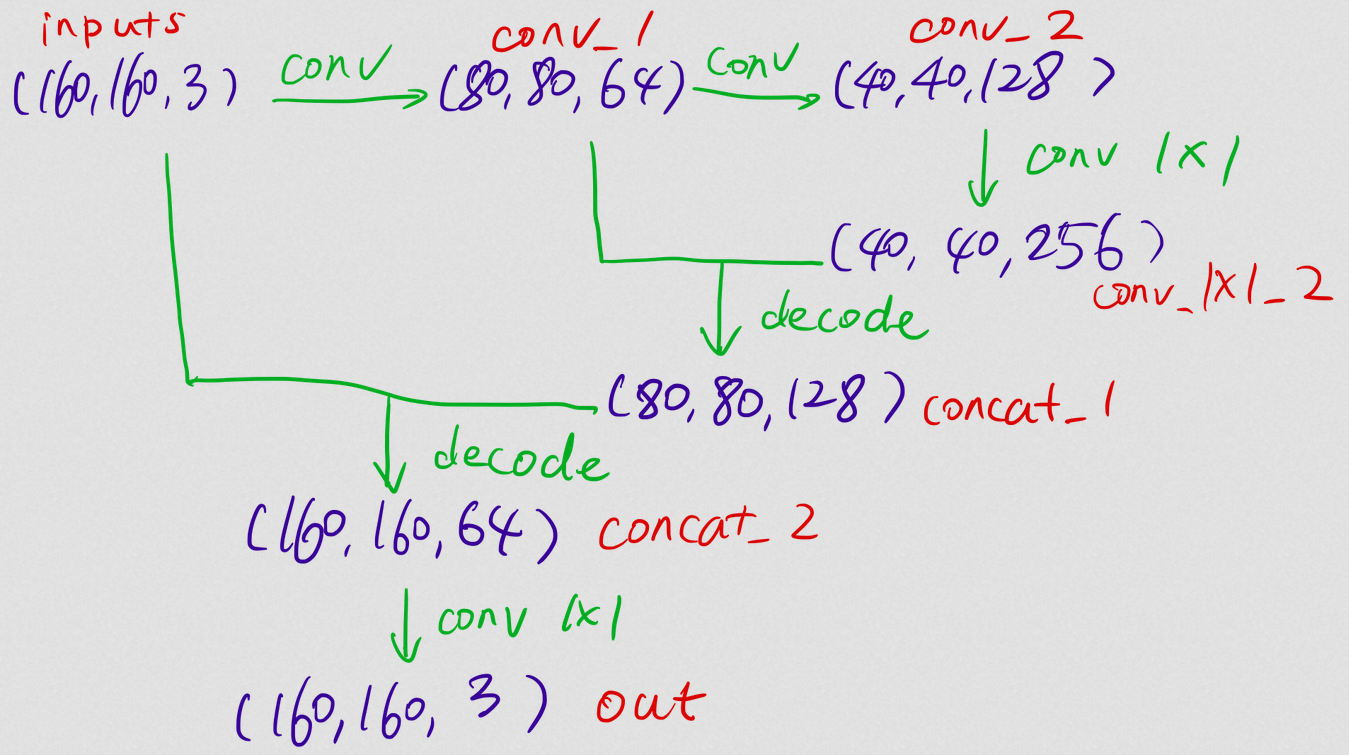 inputs conv_1 conv_2
(160,160,3) conv (80,80,64) conv (40,40,128)
conv 1x1
(40,40,256)
conv_1x1_2
decode
(80,80,128) concat_1
decode
(160,160,64) concat_2
conv 1x1
(160,160,3) out